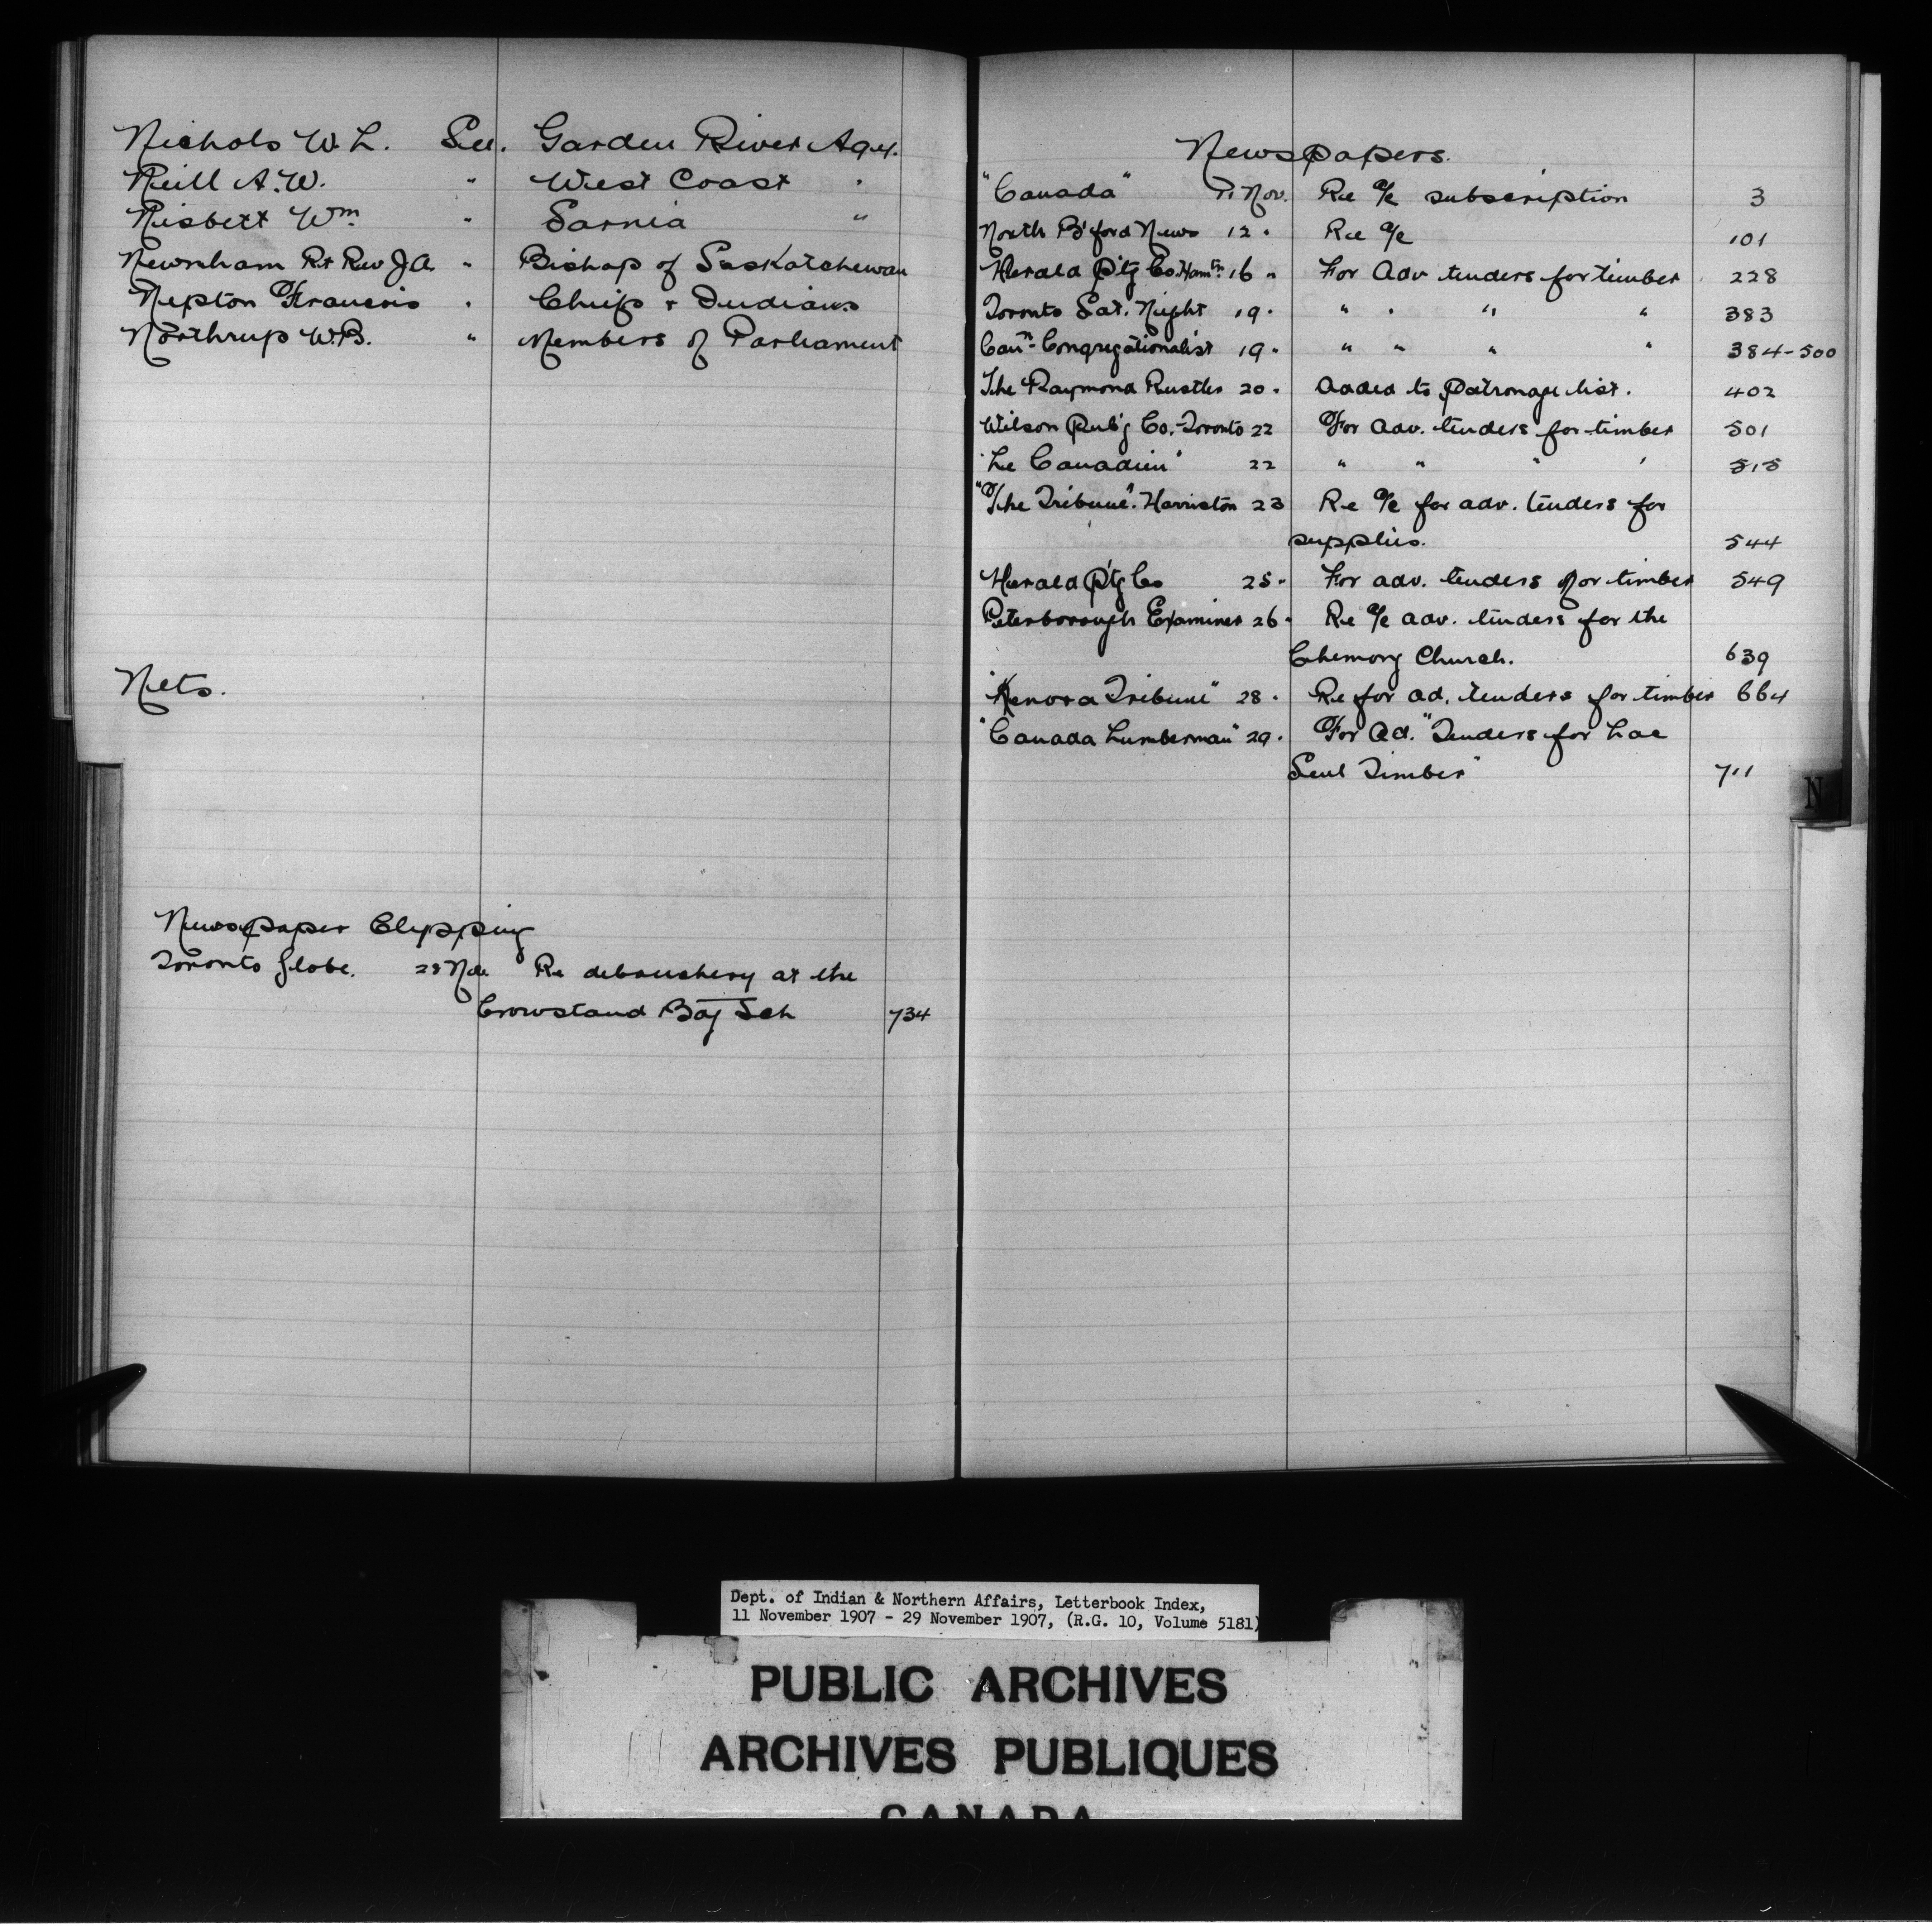 Nichols W. L. See. Garden River Agcy.
Neill A. W. " West Coast "
Nisbett Wm " Sarnia "
Newnham Rt Rev J A. " Bishop of Saskatchewan
Nepton Francois " Chiefs & Indians
Northrup W. B. " Members of Parliament
Nets.
Newspaper Clipping
Toronto Globe. 28 Nov Re debauchery at the
Crowstand Bdg Sch 734
Newspapers.
"Canada" 11 Nov. Re a/c subscription 3
North B'ford News 12 " Re a/c 101
Herald P't'g Co. Hamtn 16 " For Adv tenders for timber 228
Toronto Sat. Night 19 " " " " " 383
Can'n Congregationalist 19 " " " " " 384-500
The Raymond Rustler 20 " Added to Patronage list. 402
Wilson Pub'g Co. Toronto 22 For adv. tenders for timber 501
"Le Canadien" 22 " " " " 515
"The Tribune". Harriston 23 Re a/c for adv. tenders for
supplies. 544
Herald P't'g Co 25 " For adv. tenders for timber 549
Peterborough Examiner 26 " Re a/c adv. tenders for the
Chemong Church. 639
"Kenora Tribune" 28 " Re for ad. tenders for timber 664
"Canada Lumberman" 29 " For Ad. "Tenders for Lac
Seul Timber" 711
N
Dept. of Indian & Northern Affairs, Letterbook Index,
11 November 1907 - 29 November 1907, (R.G. 10, Volume 5181)
PUBLIC ARCHIVES
ARCHIVES PUBLIQUES
CANADA